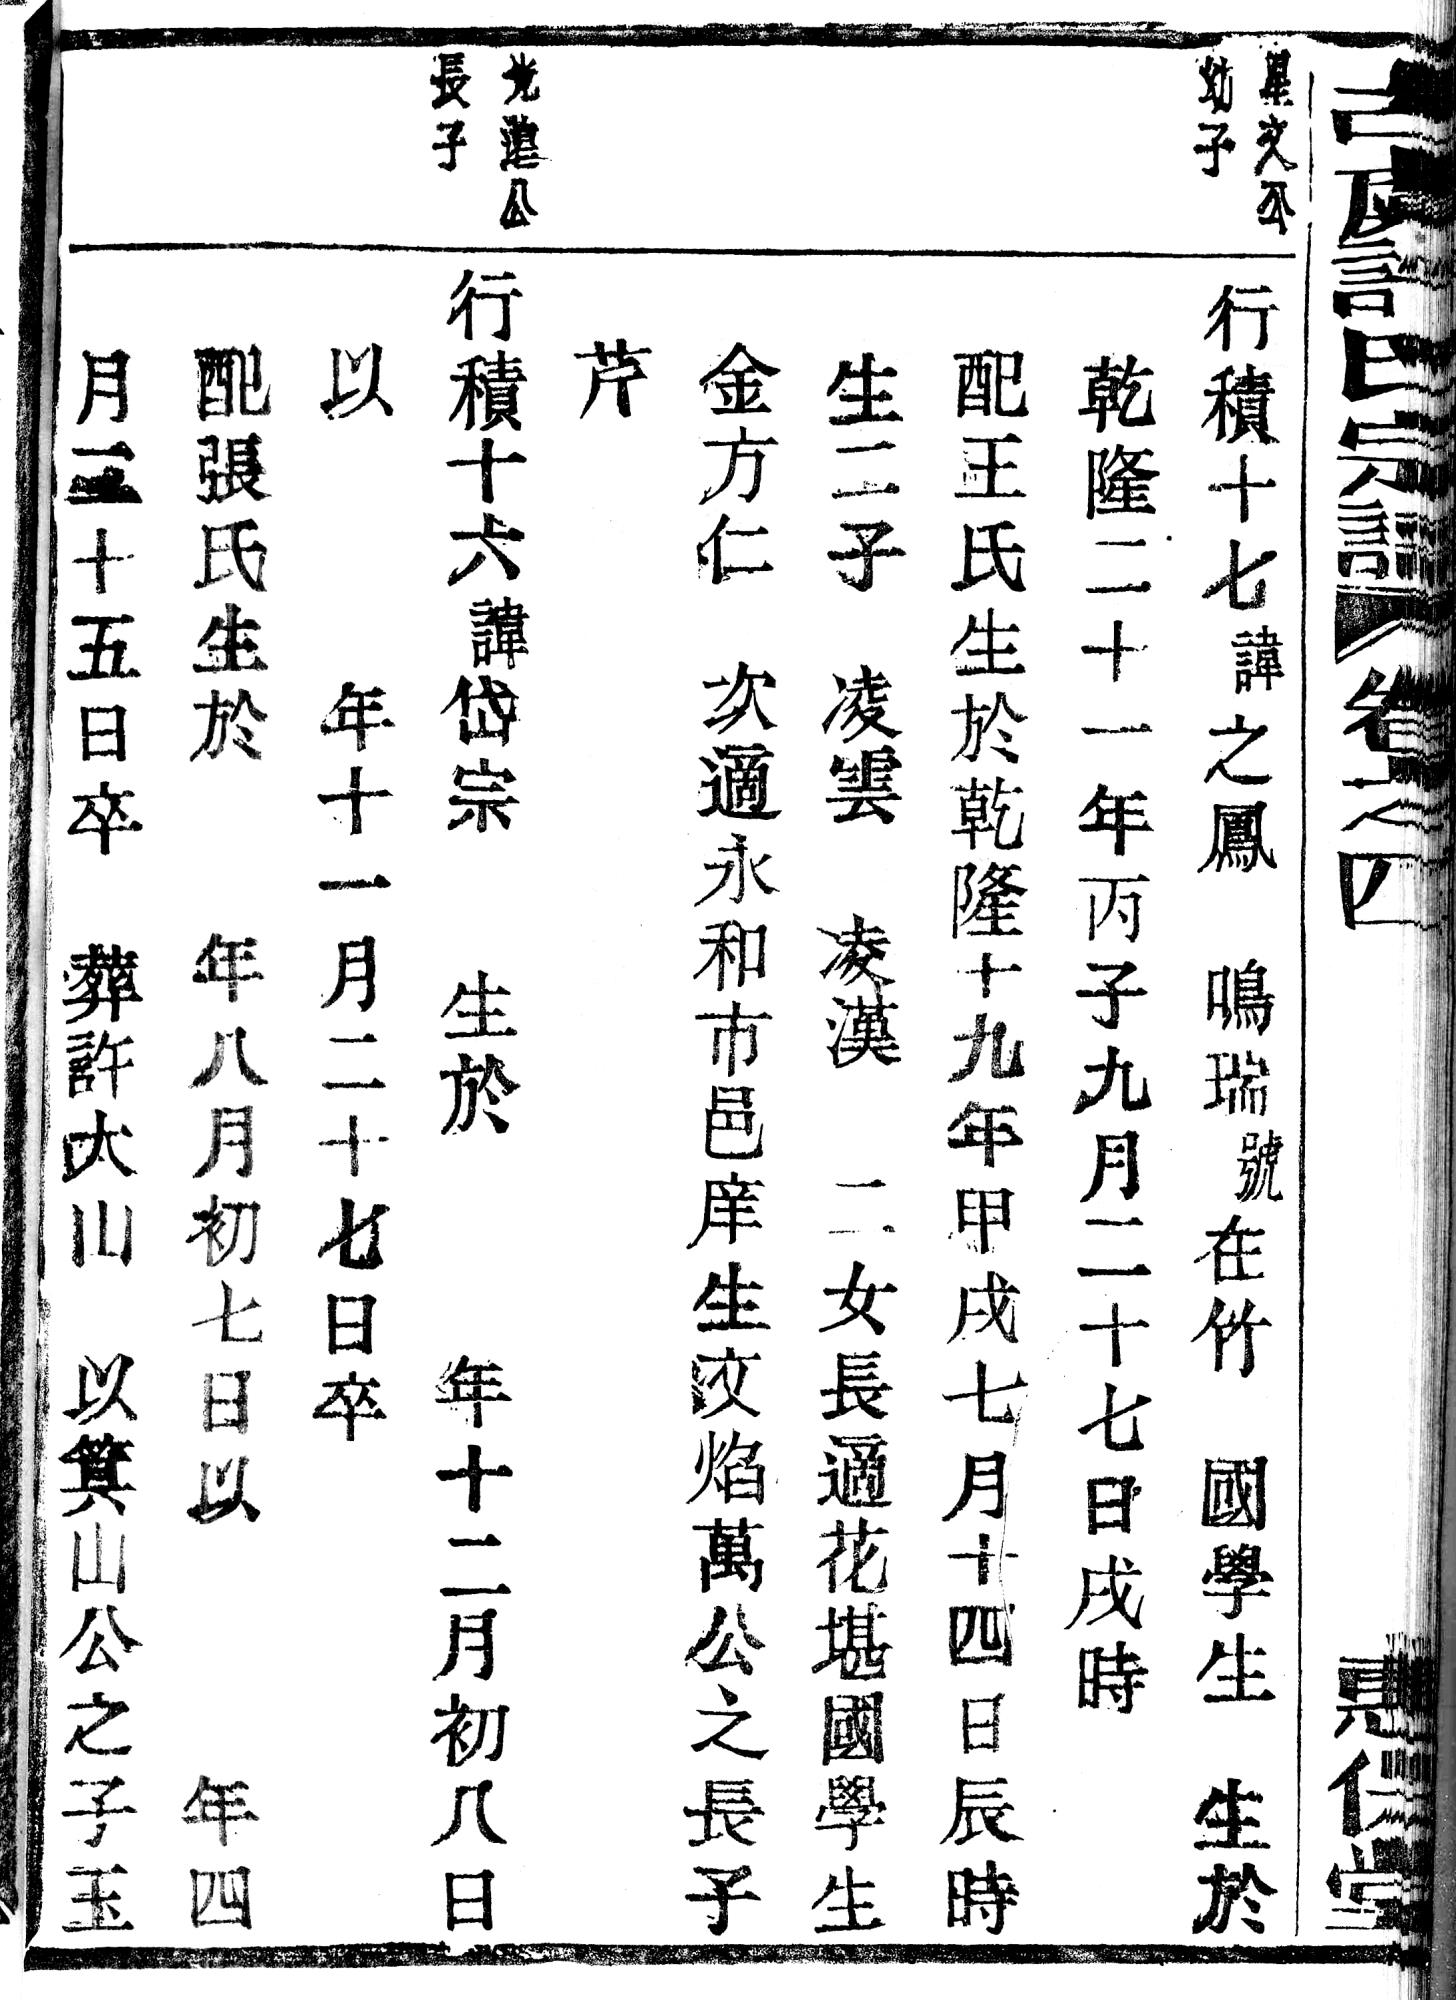 氏宗譜 卷之四
堂
星文公
幼子
行積十七諱之鳳 鳴瑞號在竹 國學生 生於
乾隆二十一年丙子九月二十七日戌時
配王氏生於乾隆十九年甲戌七月十四日辰時
生二子 凌雲 凌漢 二女長適花堪國學生
金方仁 次適永和市邑庠生文焰萬公之長子
芹
光公
長子
行積十六諱岱宗 生於 年十二月初八日
以 年十一月二十七日卒
配張氏生於 年八月初七日以 年四
月十五日卒 葬許大山 以箕山公之子玉